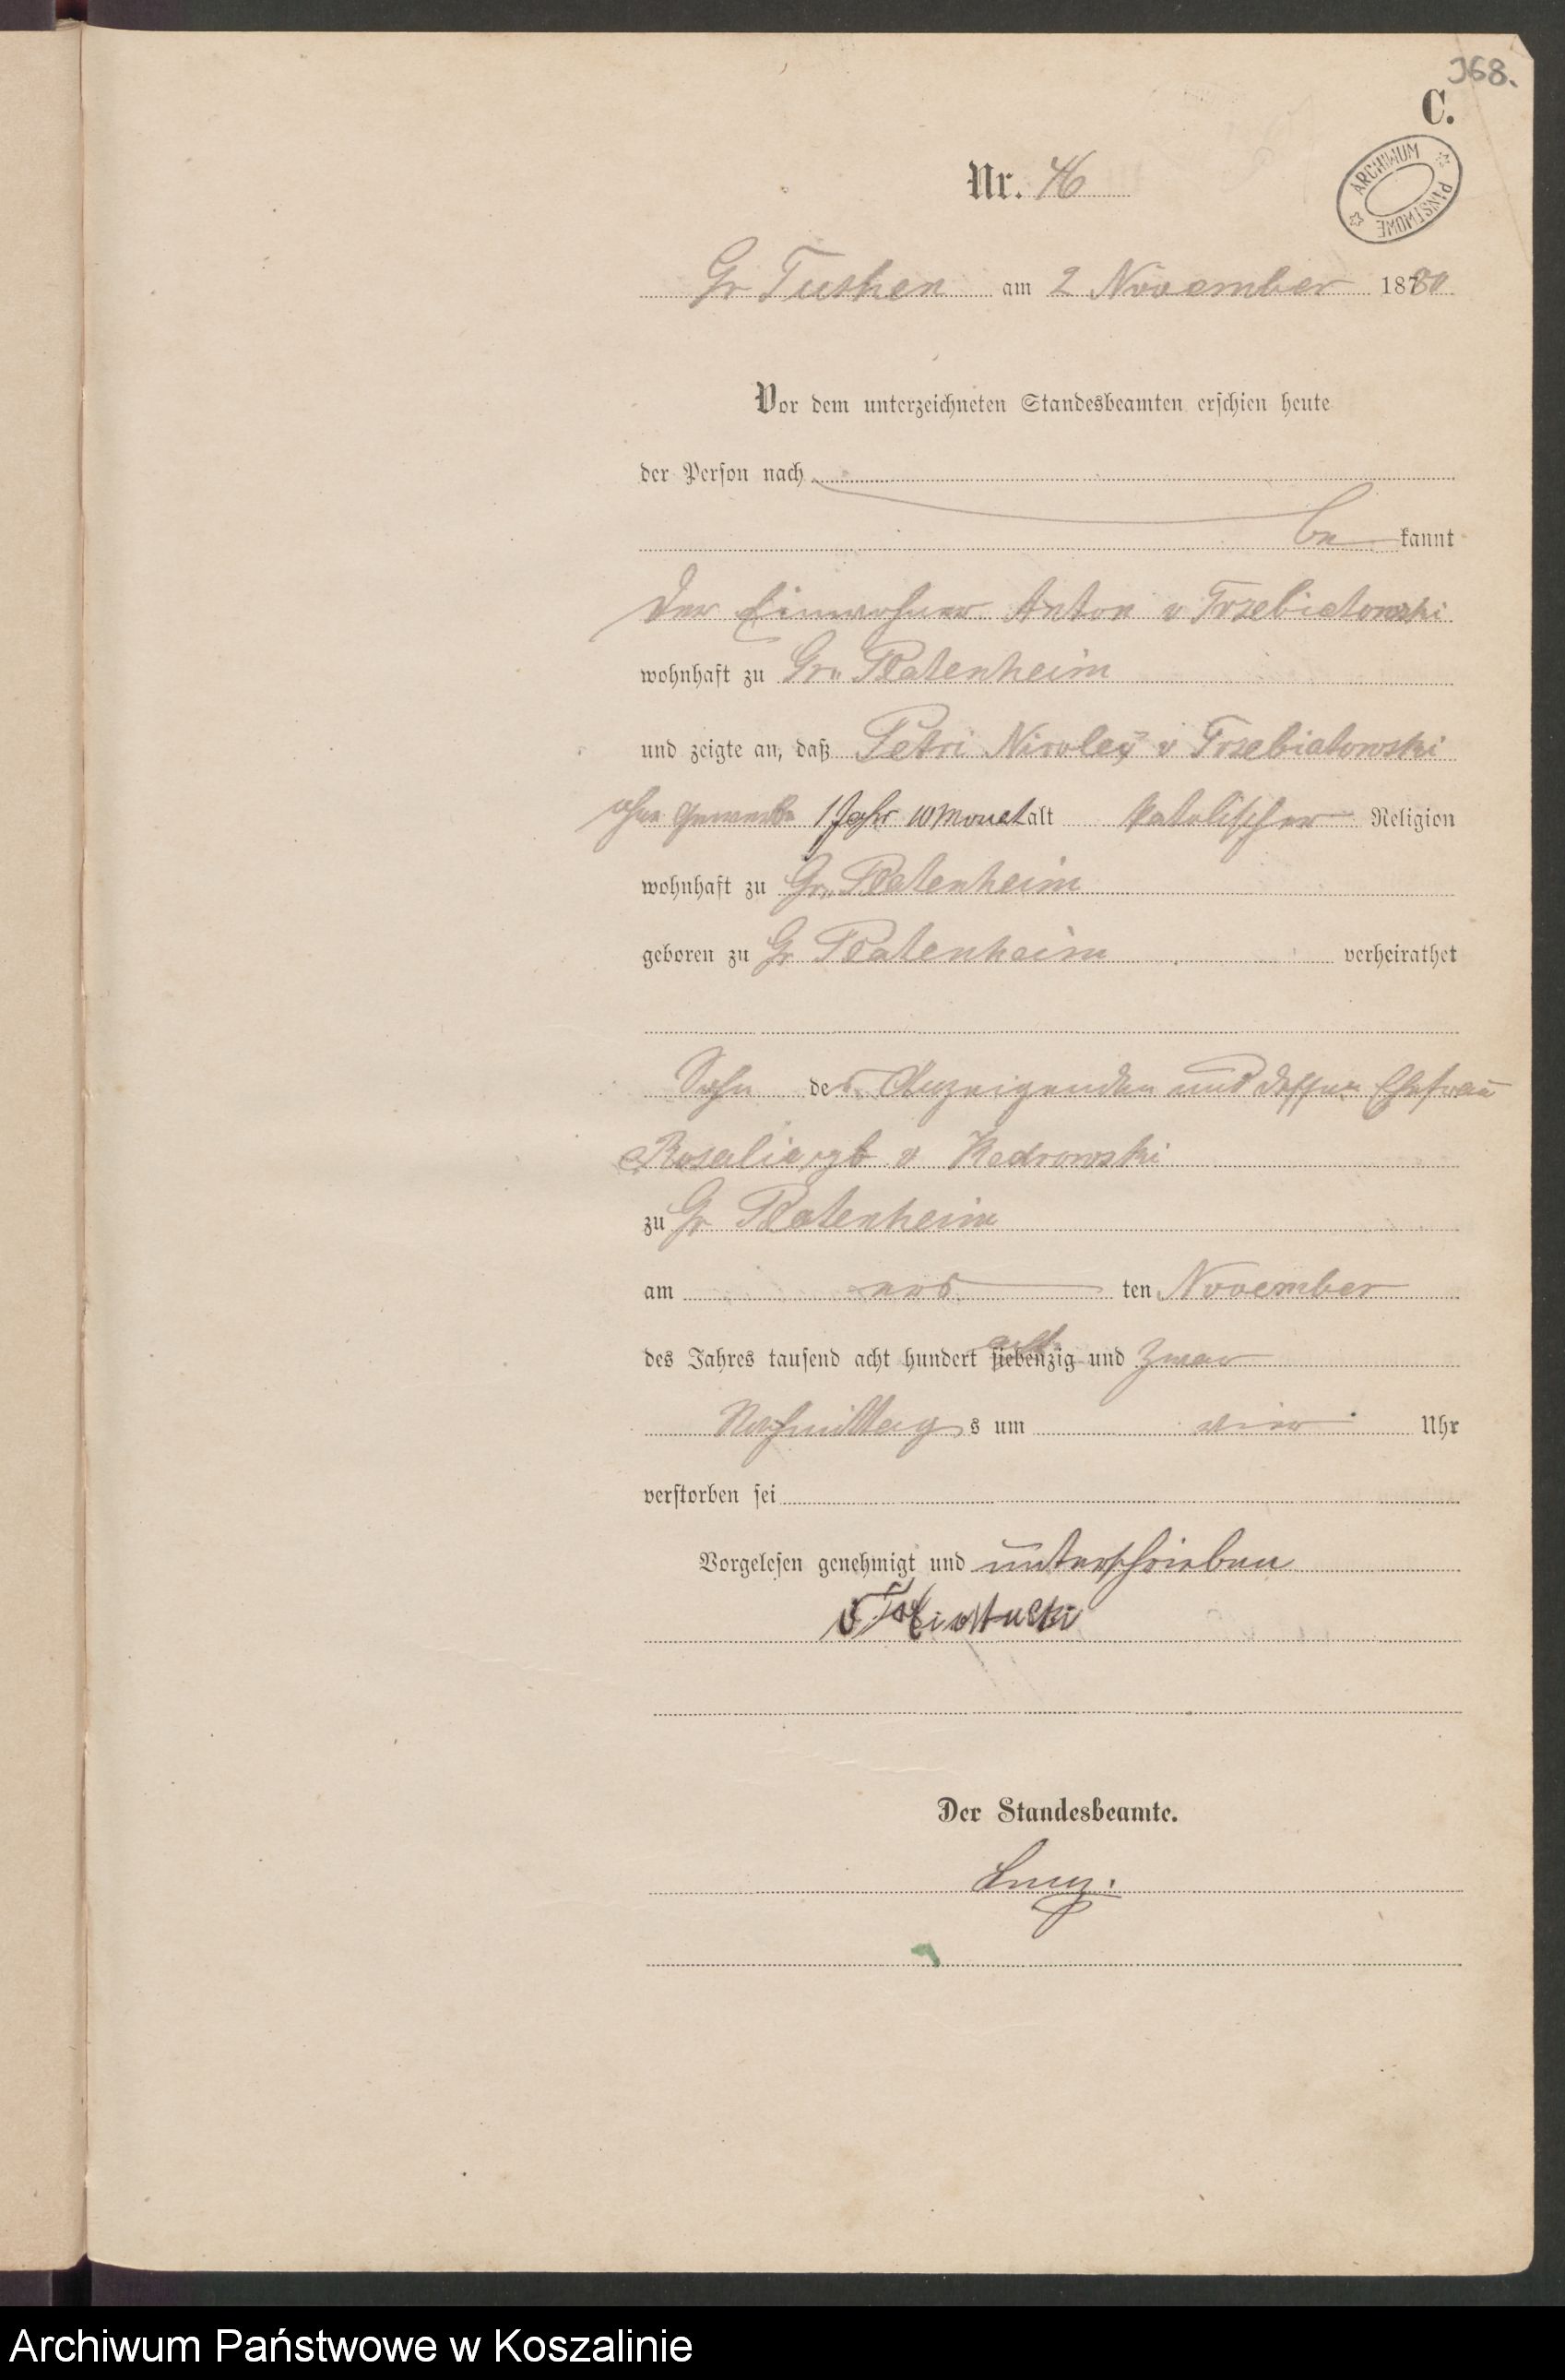 368.
C.
ARCHIWUM PAŃSTWOWE
Nr. 46
Gr Tuchen am 2 November 1880
Vor dem unterzeichneten Standesbeamten erschien heute
der Person nach
be kannt
der Einwohner Anton v Trzebiatowski
wohnhaft zu Gr. Platenheim
und zeigte an, daß Petri v Trzebiatowski
ohne Gewerbe 1 Jahr 10 Monat alt katolischer Religion
wohnhaft zu Gr. Platenheim
geboren zu Gr Platenheim verheirathet
Sohn des Anzeigenden und dessen Ehefrau
Rosalie gb v Kedrowski
zu Gr Platenheim
am ten November
des Jahres tausend acht hundert siebenzig acht und zwar
Nachmittag s um vier Uhr
verstorben sei
Vorgelesen genehmigt und unterschrieben
Der Standesbeamte.
Archiwum Państwowe w Koszalinie